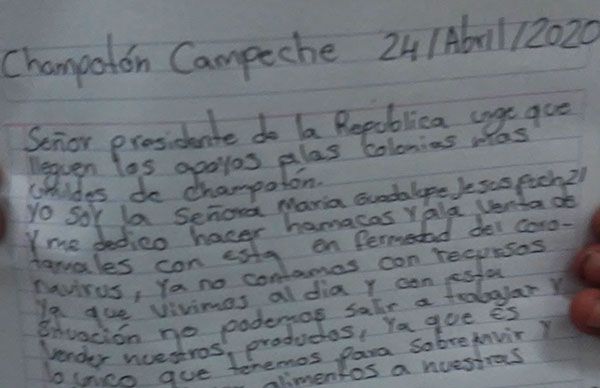 Champotón Campeche 24/Abril/2020
Señor presidente de la Republica urge que
lleguen los apoyos alas colonias mas
de champotón.
Yo soy la señora Maria Guadalupe Jesus
Y me dedico hacer hamacas Y ala venta de
tamales con esta en fermedad del coro-
navirus, Ya no contamos con recursos
Ya que vivimos al dia y con esta
situación no podemos salir a trabajar Y
vender nuestros productos, Ya que es
lo unico que tenemos para sobrevivir Y
alimentos a nuestras